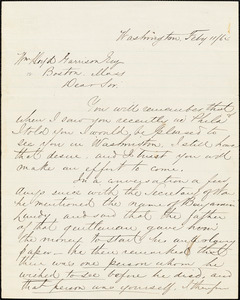 Washington Feby 11/64
Wm Lloyd Garrison Esq
Boston Mass
Dear Sir
You will remember that
when I saw you recently in Phila
I told you I would be pleased to
see you in Washington. I still have
that desire, and I trust you will
make an effort to come.
In a conversation a few
days since with the Secretary of War
he mentioned the name of Benjamin
Lundy, and said that the father
of that gentleman, gave him
the money to start his
paper. He then remarked that
there was one person whom he
wished to see before he died, and
that person was yourself. I therefore